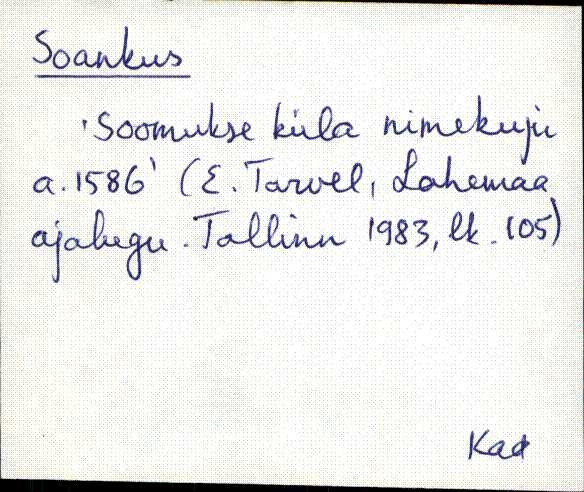 Soankus
'Soomukse küla nimekuju
a. 1586' (E. Tarvel, Lahemaa
ajalugu. Tallinn 1983, lk. 105)
Kad